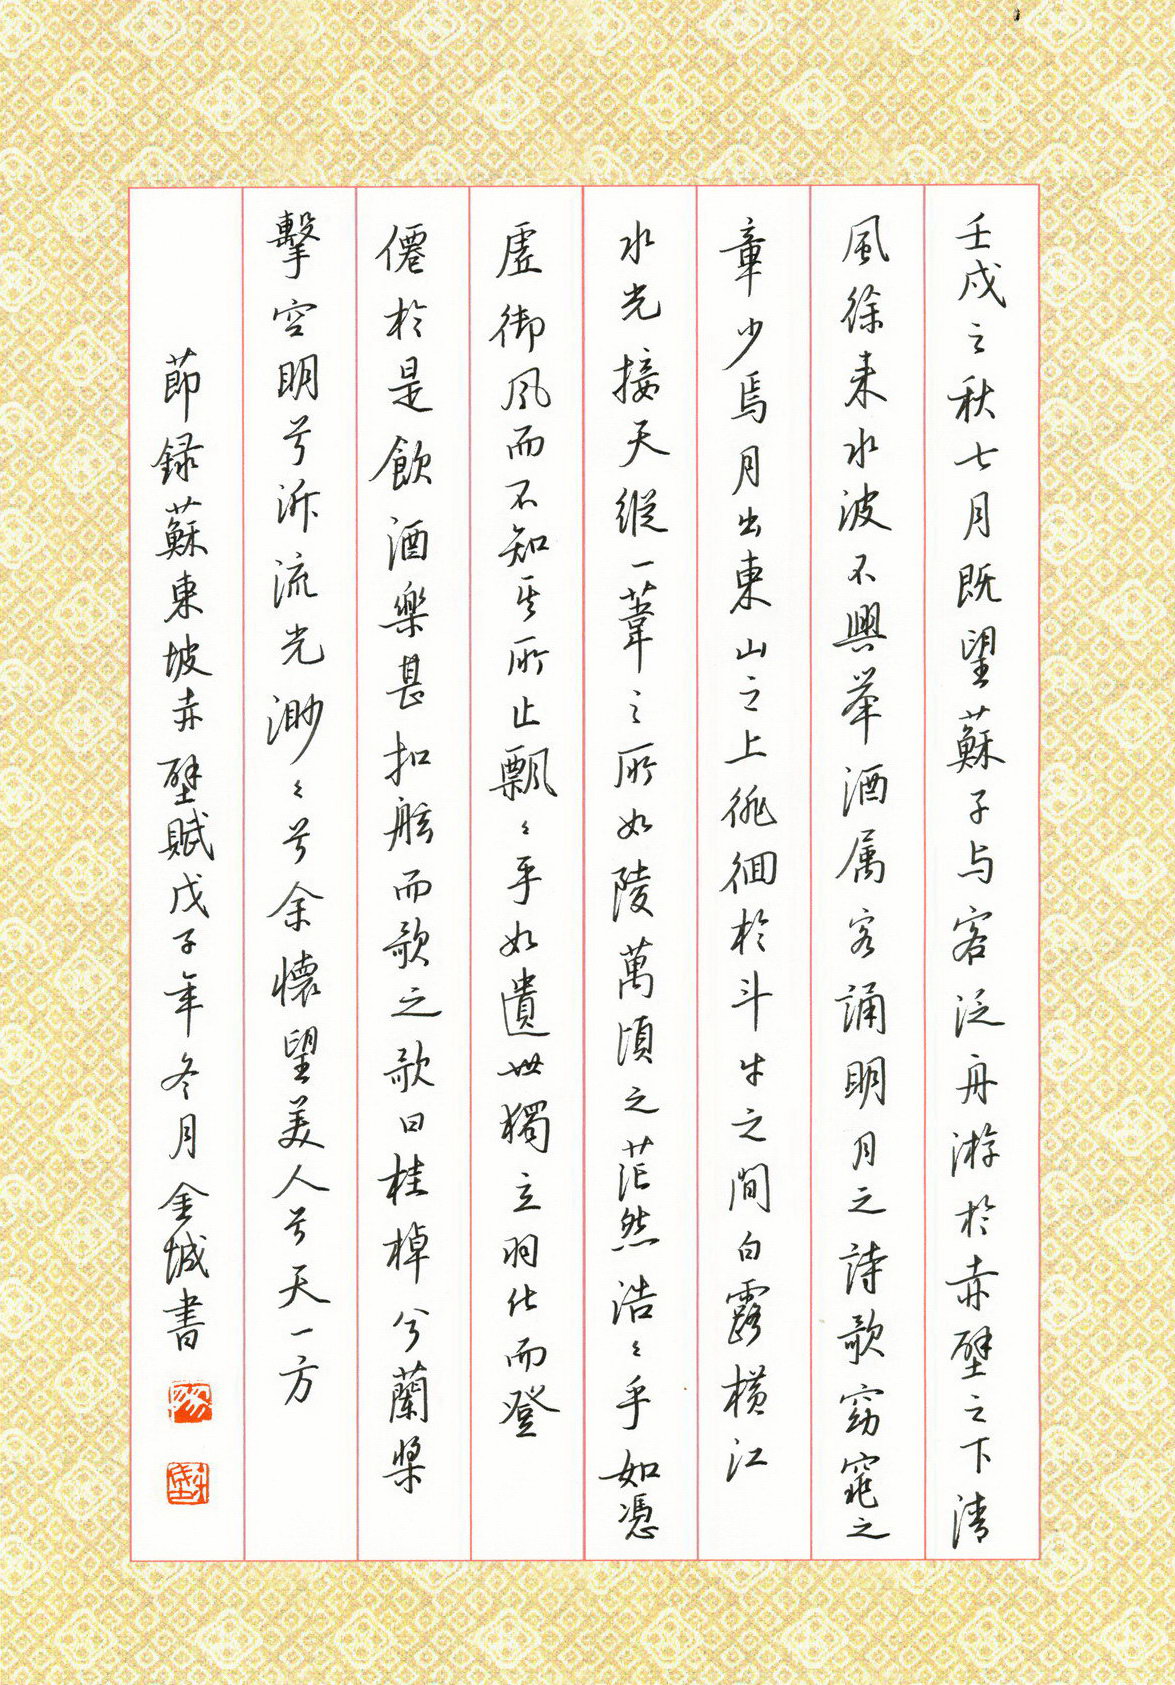 壬戌之秋七月既望蘇子与客泛舟游於赤壁之下清
風徐来水波不興举酒属客誦明月之詩歌窈窕之
章少焉月出東山之上徘徊於斗牛之間白露横江
水光接天縱一葦之所如陵萬頃之茫然浩々乎如憑
虛御風而不知其所止飄々乎如遺世獨立羽化而登
僊於是飲酒樂甚扣舷而歌之歌曰桂棹兮蘭槳
擊空明兮泝流光渺々兮余懷望美人兮天一方
莭録蘇東坡赤壁賦戊子年冬月金城書